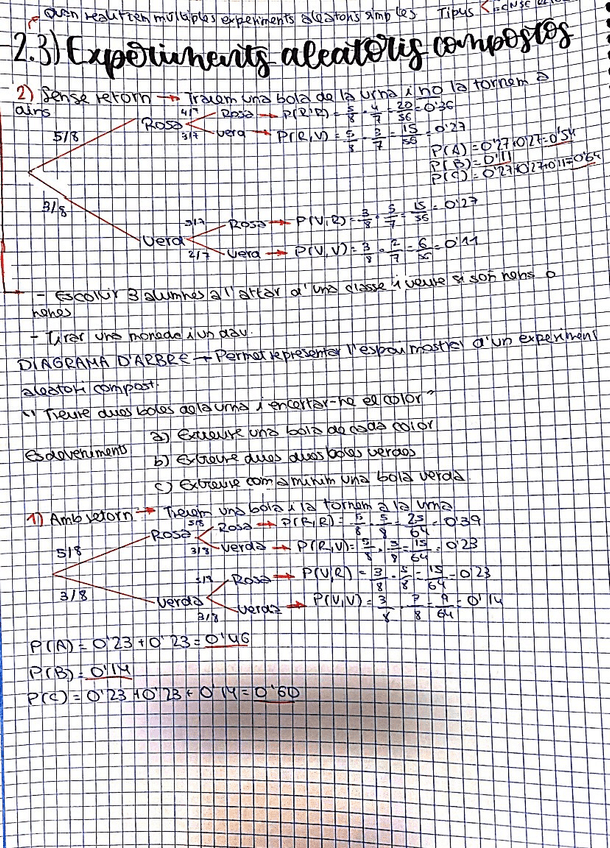 Quan realitzem múltiples experiments aleatoris simples Tipus
2.3) Experiments aleatoris compostos
2) Sense retorn → Traiem una bola de la urna i no la tornem a
dins
5/8 Rosa 4/7 Rosa → P(R,R) = 5/8 · 4/7 = 20/56 = 0'36
3/7 vera → P(R,V) = 5/8 · 3/7 = 15/56 = 0'27
P(A) = 0'27+0'27=0'54
P(B) = 0'11
P(C) = 0'27+0'27+0'11=0'65
3/8 Verda 5/7 Rosa → P(V,R) = 3/8 · 5/7 = 15/56 = 0'27
2/7 vera → P(V,V) = 3/8 · 2/7 = 6/56 = 0'11
- Escollir 3 alumnes a l'atzar d'una classe i veure si són nens o
nenes
- Tirar una moneda i un dau.
DIAGRAMA D'ARBRE → Permet representar l'espai mostral d'un experiment
aleatori compost.
" Treure dues boles de la urna i encertar-ne el color"
Esdeveniments a) Extreure una bola de cada color
b) Extreure dues dues boles verdes
c) Extreure com a mínim una bola verda
1) Amb retorn → Treiem una bola i la tornem a la urna
5/8 Rosa 5/8 Rosa → P(R,R) = 5/8 · 5/8 = 25/64 = 0'39
3/8 verda → P(R,V) = 5/8 · 3/8 = 15/64 = 0'23
3/8 Verda 5/8 Rosa → P(V,R) = 3/8 · 5/8 = 15/64 = 0'23
3/8 verda → P(V,V) = 3/8 · 3/8 = 9/64 = 0'14
P(A) = 0'23 + 0'23 = 0'46
P(B) = 0'14
P(C) = 0'23 + 0'23 + 0'14 = 0'60